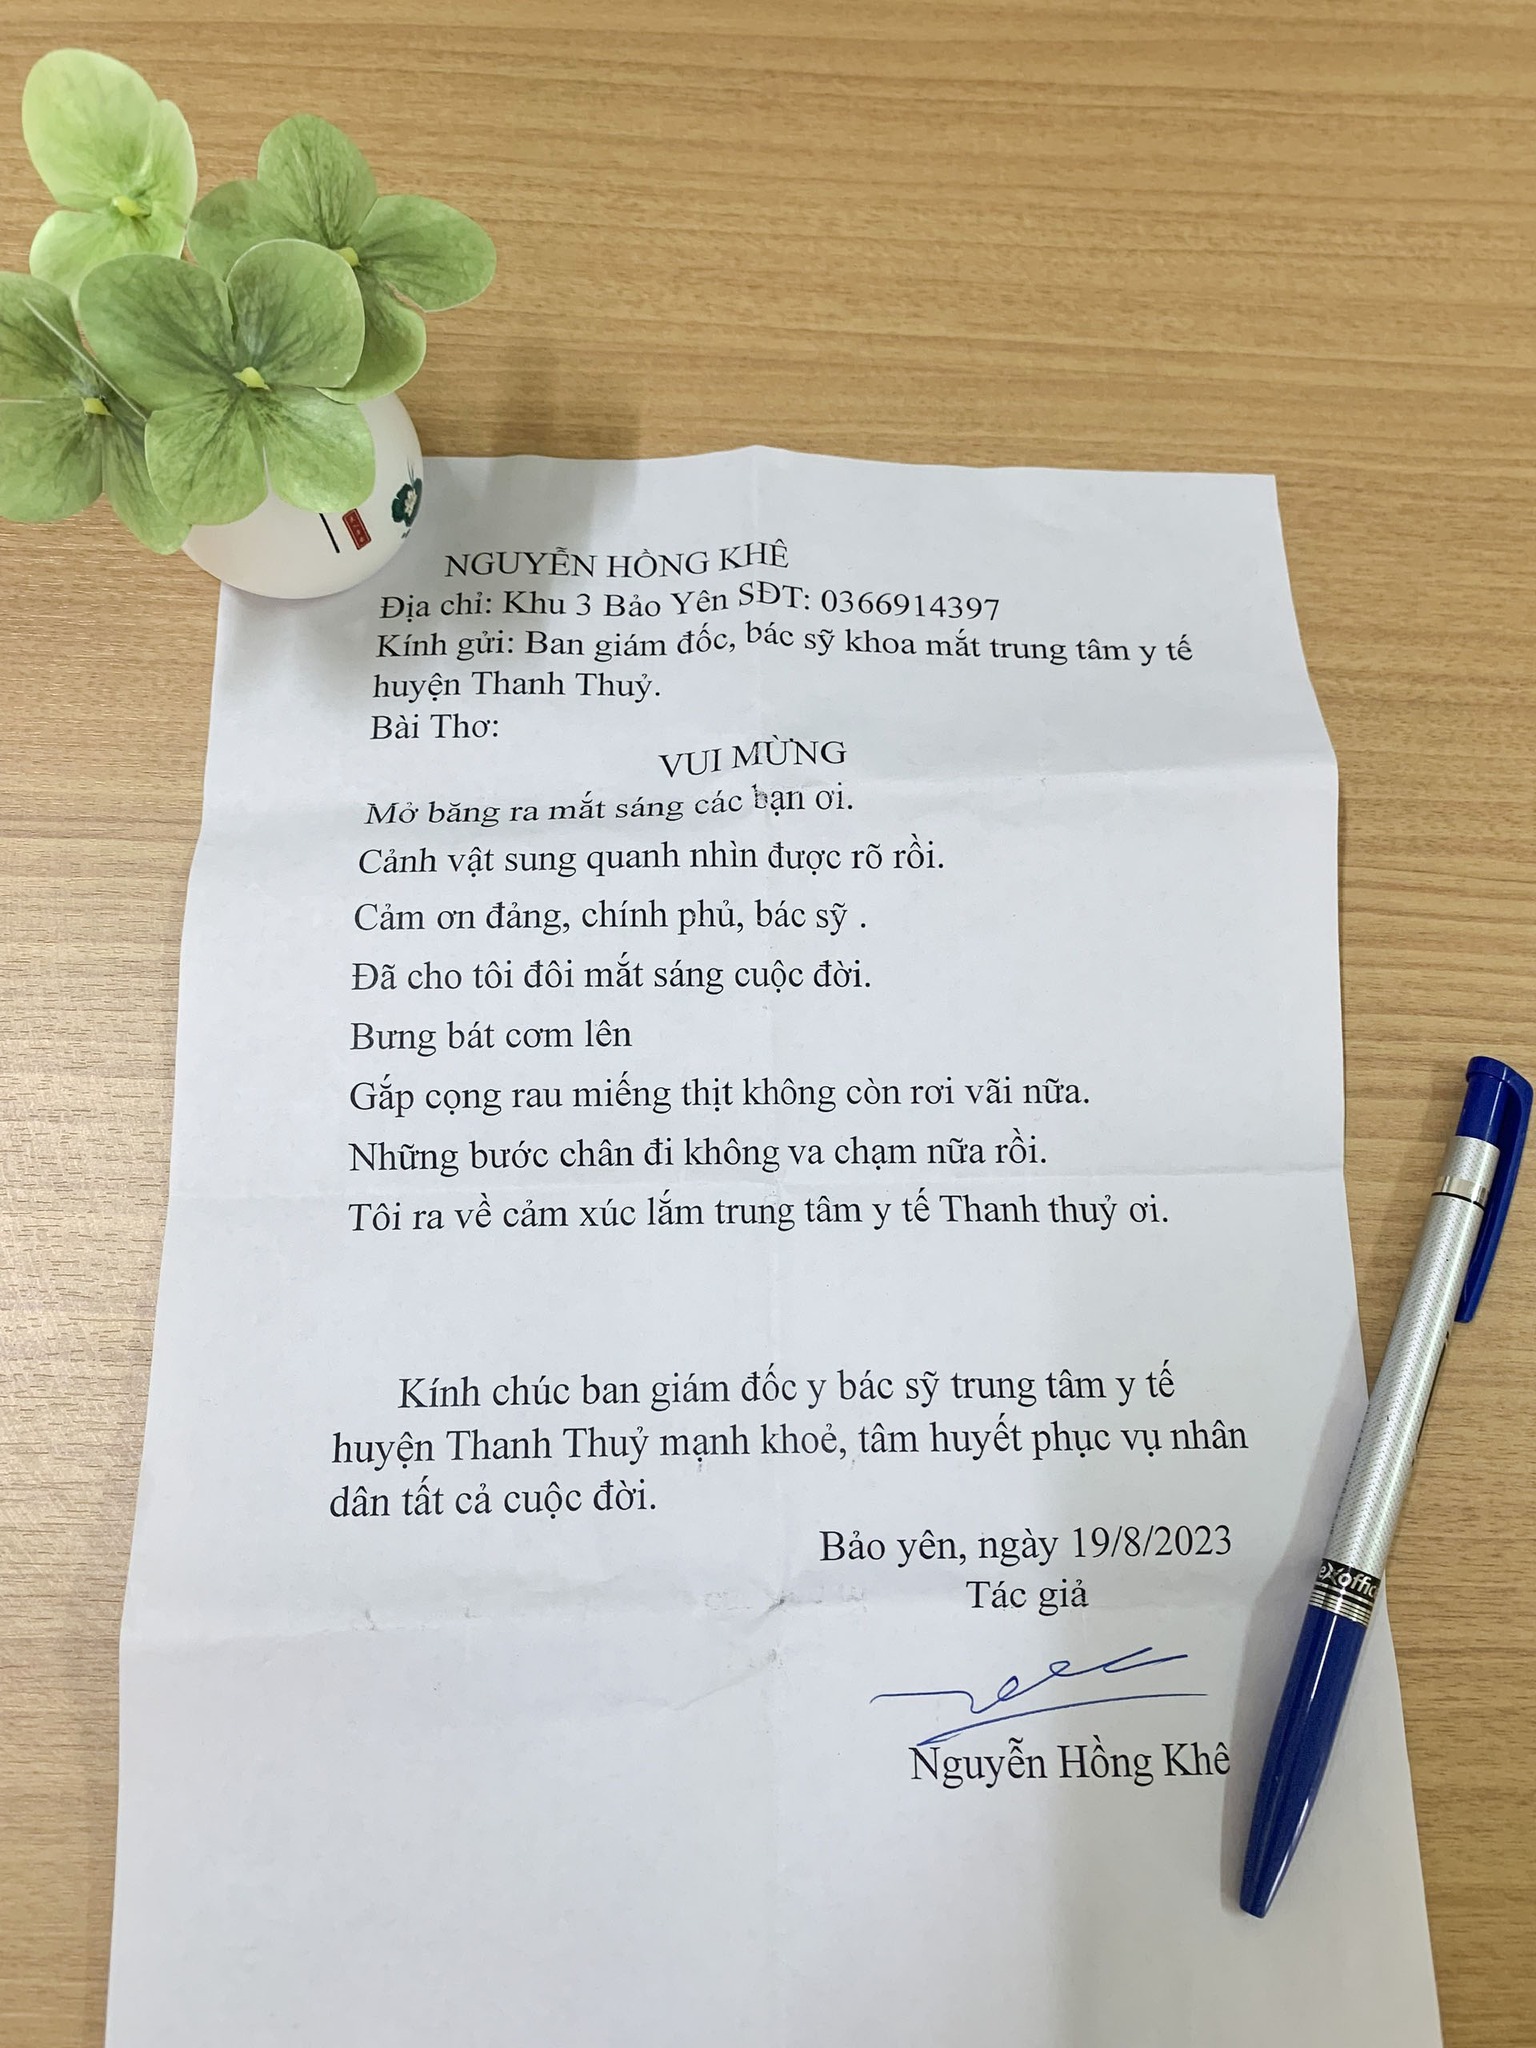 NGUYỄN HỒNG KHÊ
Địa chỉ: Khu 3 Bảo Yên SĐT: 0366914397
Kính gửi: Ban giám đốc, bác sỹ khoa mắt trung tâm y tế
huyện Thanh Thuỷ.
Bài Thơ:
VUI MỪNG
Mở băng ra mắt sáng các bạn ơi.
Cảnh vật sung quanh nhìn được rõ rồi.
Cảm ơn đảng, chính phủ, bác sỹ .
Đã cho tôi đôi mắt sáng cuộc đời.
Bưng bát cơm lên
Gắp cọng rau miếng thịt không còn rơi vãi nữa.
Những bước chân đi không va chạm nữa rồi.
Tôi ra về cảm xúc lắm trung tâm y tế Thanh thuỷ ơi.
Kính chúc ban giám đốc y bác sỹ trung tâm y tế
huyện Thanh Thuỷ mạnh khoẻ, tâm huyết phục vụ nhân
dân tất cả cuộc đời.
Bảo yên, ngày 19/8/2023
Tác giả
Nguyễn Hồng Khê